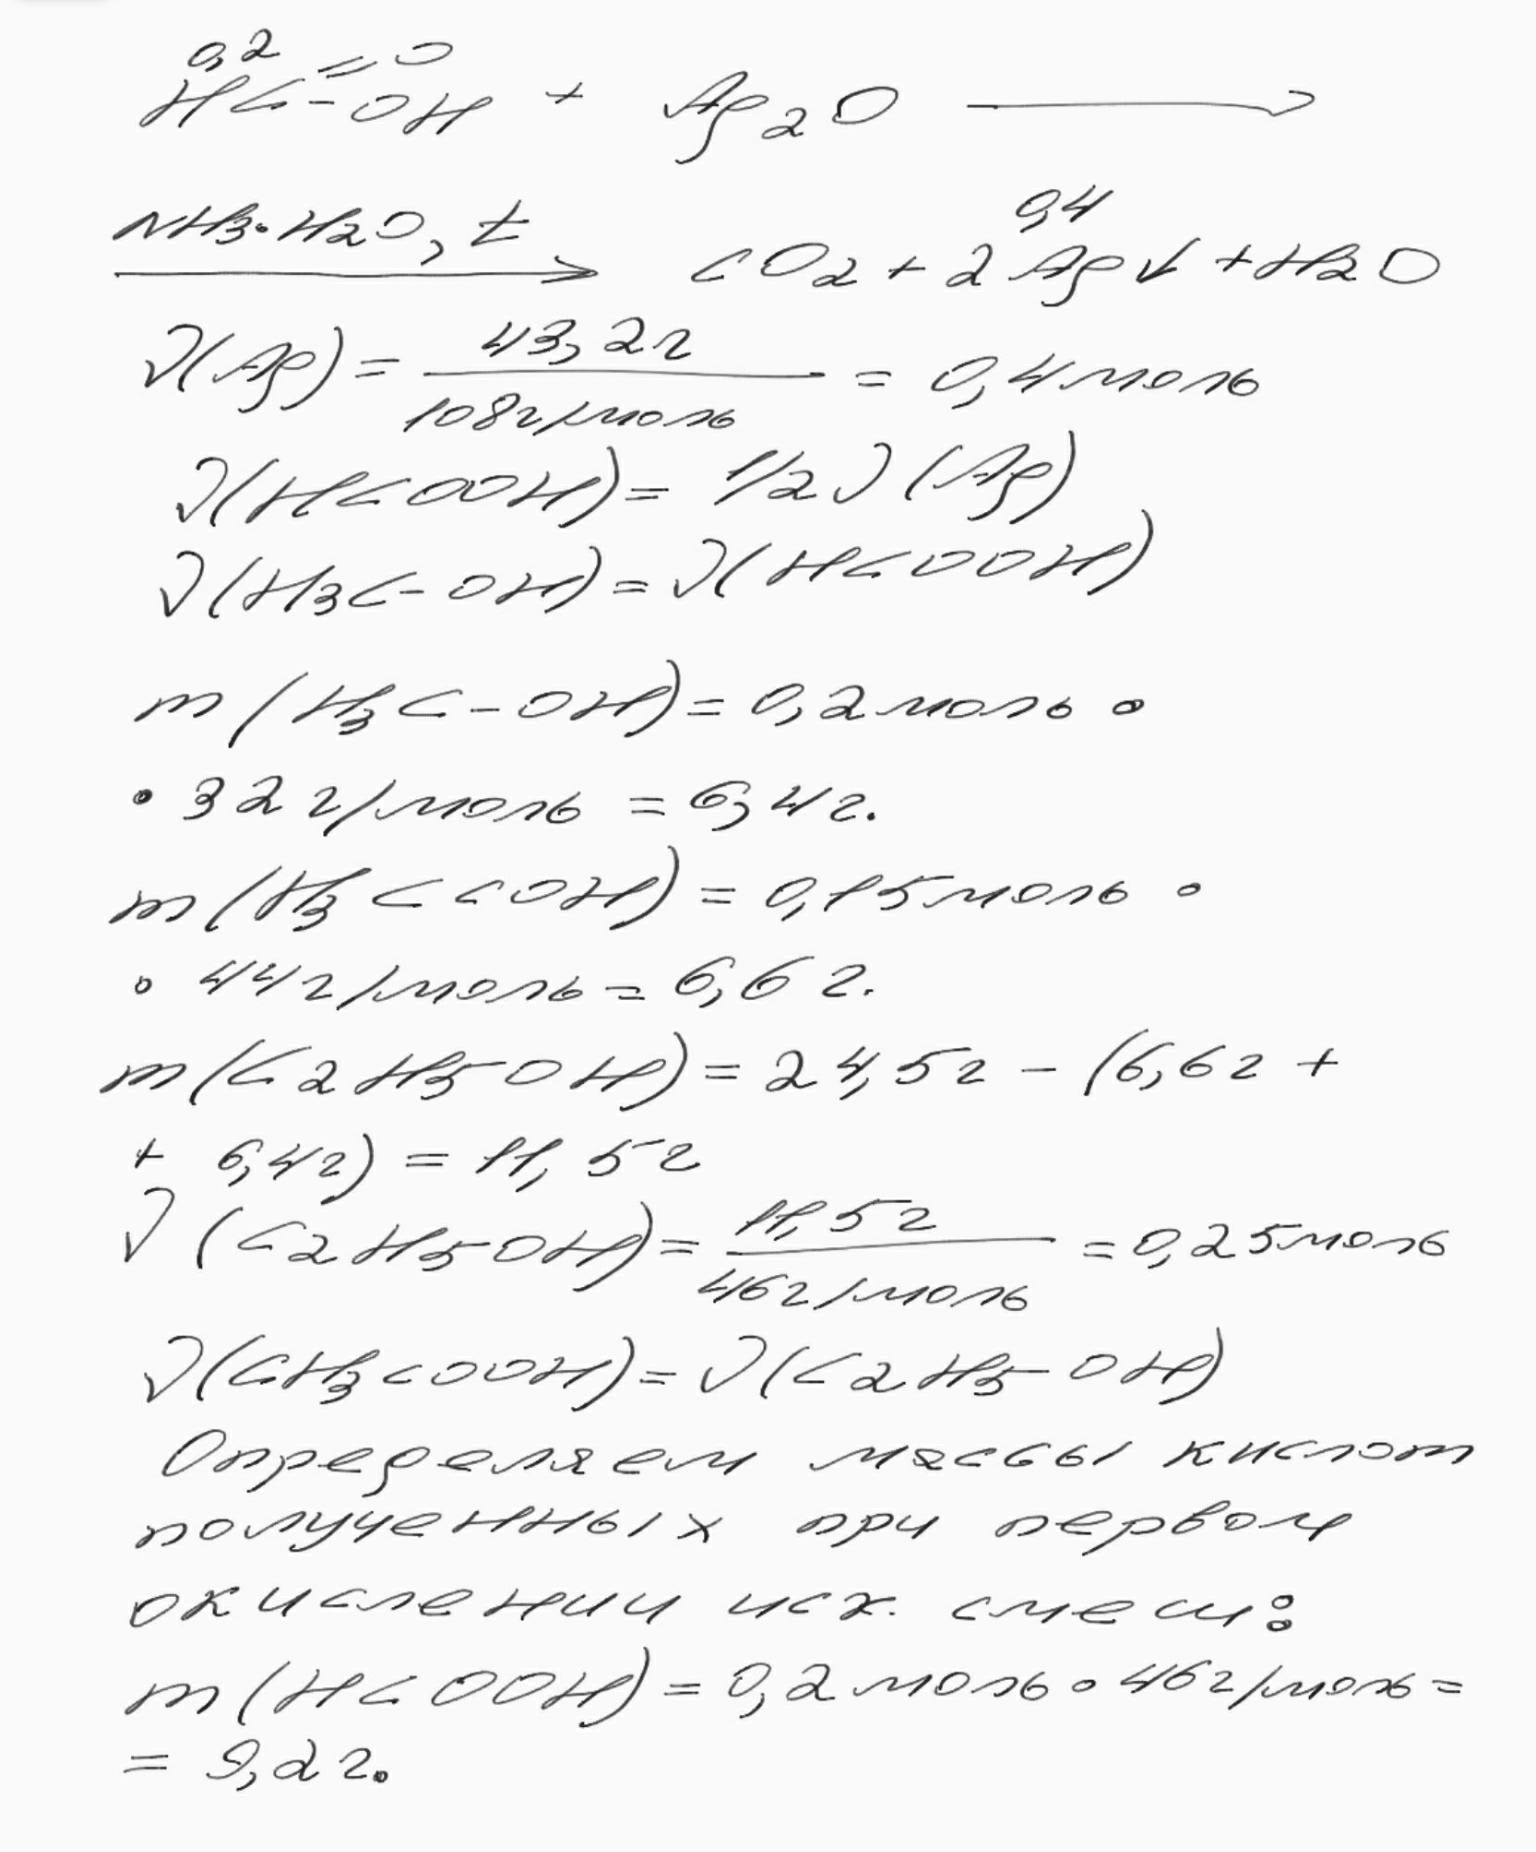 0,2 =O
HC-OH + Ag2O ⟶
NH3·H2O, t ⟶ CO2 + 2Ag↓ + H2O
0,4
ν(Ag) = 43,2г / 108г/моль = 0,4моль
ν(HCOOH) = 1/2 ν(Ag)
ν(H3C-OH) = ν(HCOOH)
m(H3C-OH) = 0,2моль ·
· 32 г/моль = 6,4г.
m(H3CCOH) = 0,15моль ·
· 44г/моль = 6,6г.
m(C2H5OH) = 24,5г - (6,6г +
+ 6,4г) = 11,5г
ν(C2H5OH) = 11,5г / 46г/моль = 0,25моль
ν(CH3COOH) = ν(C2H5-OH)
Определяем массы кислот
полученных при первом
окислении исх. смеш:
m(HCOOH) = 0,2моль · 46г/моль =
= 9,2г.